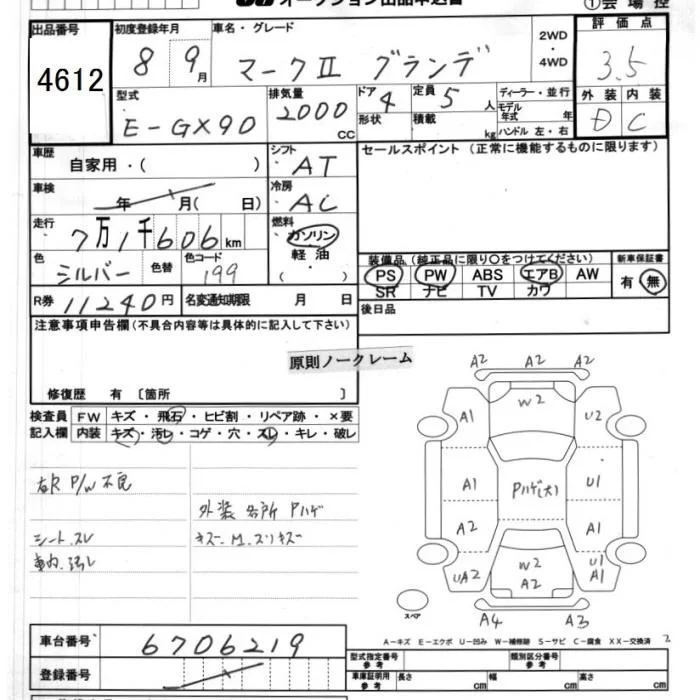 オークション出品申込書
①会場控
出品番号 初度登録年月 車名・グレード 評価点
4612
8 9月 マークⅡ グランデ 2WD・4WD 3.5
型式 排気量 ドア 定員 ディーラー・並行 外装 内装
E-GX90 2000cc 4 5人 モデル年式 年 D C
形状 積載 kg ハンドル 左・右
車歴 シフト セールスポイント(正常に機能するものに限ります)
自家用・( ) AT
車検 冷房
年 月( 日) AC
走行 燃料
7万1千606km ガソリン
色 色替 色コード 軽油 装備品(純正品に限り○をつけてください) 新車保証書
シルバー 199 ・( ) PS PW ABS エアB AW 有 無
SR ナビ TV カワ
R券 11240円 名変通知期限 月 日 後日品
注意事項申告欄(不具合内容等は具体的に記入して下さい)
原則ノークレーム
修復歴 有 〔箇所 〕
検査員 FW キズ・飛石・ヒビ割・リペア跡・×要
記入欄 内装 キズ・汚レ・コゲ・穴・スレ・キレ・破レ
右R P/W不良
外装 各所 Pハゲ
シート.スレ キズ.M.スリキズ
車内.汚レ
A2 A2 A2
A1 W2 U2
A1 Pハゲ(大) U1
A2 A1
UA2 W2 A2 U1 A1
スペア A4 A3
A-キズ E-エクボ U-凹み W-補修跡 S-サビ C-腐食 XX-交換済
2
車台番号 6706219
登録番号
型式指定番号 参考 類別区分番号 参考
車庫証明用 参考 長さ cm 幅 cm 高さ cm